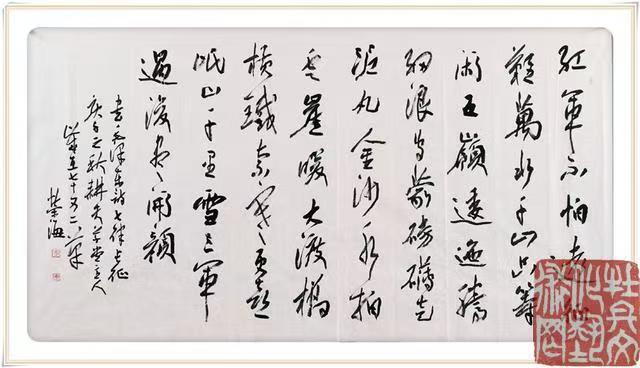 红軍不怕遠征
難萬水千山只等
闲五嶺逶迤騰
细浪烏蒙磅礴走
泥丸金沙水拍
雲崖暖大渡橋
横鐵索寒更喜
岷山千里雪三軍
過後盡開顏
書毛澤東詩七律長征
庚子之秋耕夫草堂主人
七十又二
海
牡丹文